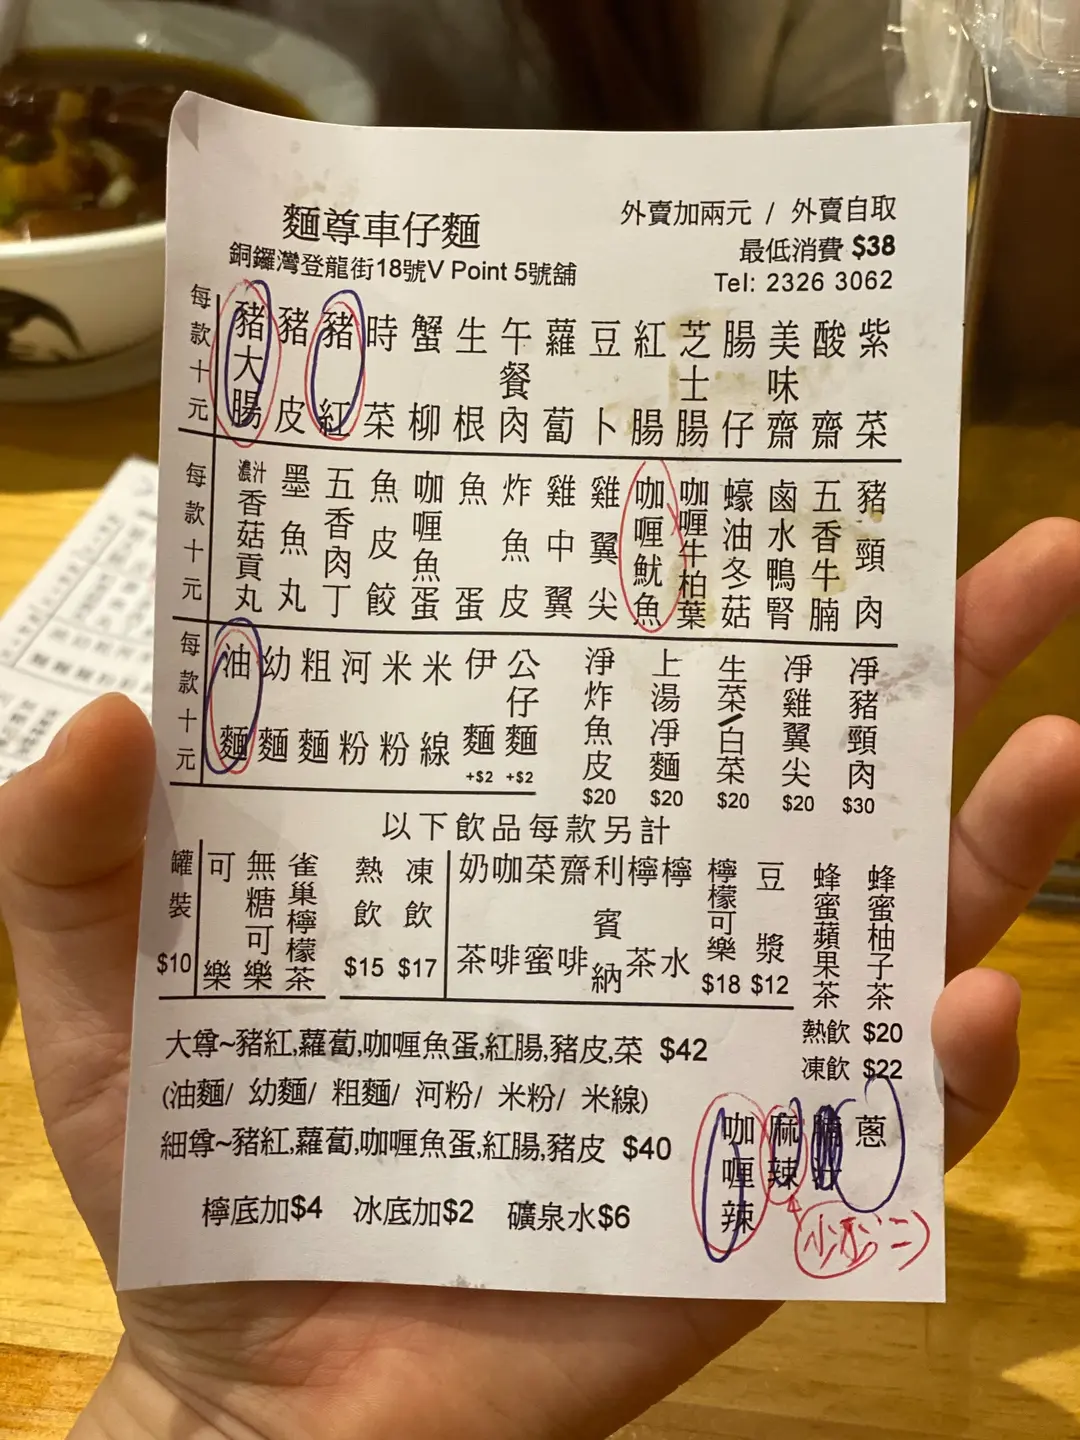 麵尊車仔麵
銅鑼灣登龍街18號V Point 5號舖
外賣加兩元 / 外賣自取
最低消費 $38
Tel: 2326 3062
每款十元
豬大腸
豬皮
豬紅
時菜
蟹柳
生根
午餐肉
蘿蔔
豆卜
紅腸
芝士腸
腸仔
美味齋
酸齋
紫菜
每款十元
濃汁香菇貢丸
墨魚丸
五香肉丁
魚皮餃
咖喱魚蛋
魚蛋
炸魚皮
雞中翼
雞翼尖
咖喱魷魚
咖喱牛柏葉
蠔油冬菇
鹵水鴨腎
五香牛腩
豬頸肉
每款十元
油麵
幼麵
粗麵
河粉
米粉
米線
伊麵 +$2
公仔麵 +$2
淨炸魚皮 $20
上湯淨麵 $20
生菜/白菜 $20
淨雞翼尖 $20
淨豬頸肉 $30
以下飲品每款另計
罐裝 $10
可樂
無糖可樂
雀巢檸檬茶
熱飲 $15
凍飲 $17
奶茶
咖啡
菜蜜
齋啡
利賓納
檸茶
檸水
檸檬可樂 $18
豆漿 $12
蜂蜜蘋果茶
蜂蜜柚子茶
熱飲 $20
凍飲 $22
大尊~豬紅,蘿蔔,咖喱魚蛋,紅腸,豬皮,菜 $42
(油麵/ 幼麵/ 粗麵/ 河粉/ 米粉/ 米線)
細尊~豬紅,蘿蔔,咖喱魚蛋,紅腸,豬皮 $40
檸底加$4 冰底加$2 礦泉水$6
咖喱辣
麻辣
腩汁
蔥